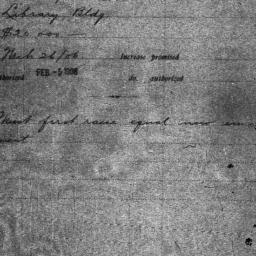 Library Bldg
$20 000 —
Mch 26/06 Increase promised
thorized FEB -5 1906 do. authorized
Must first raise equal new en
ment